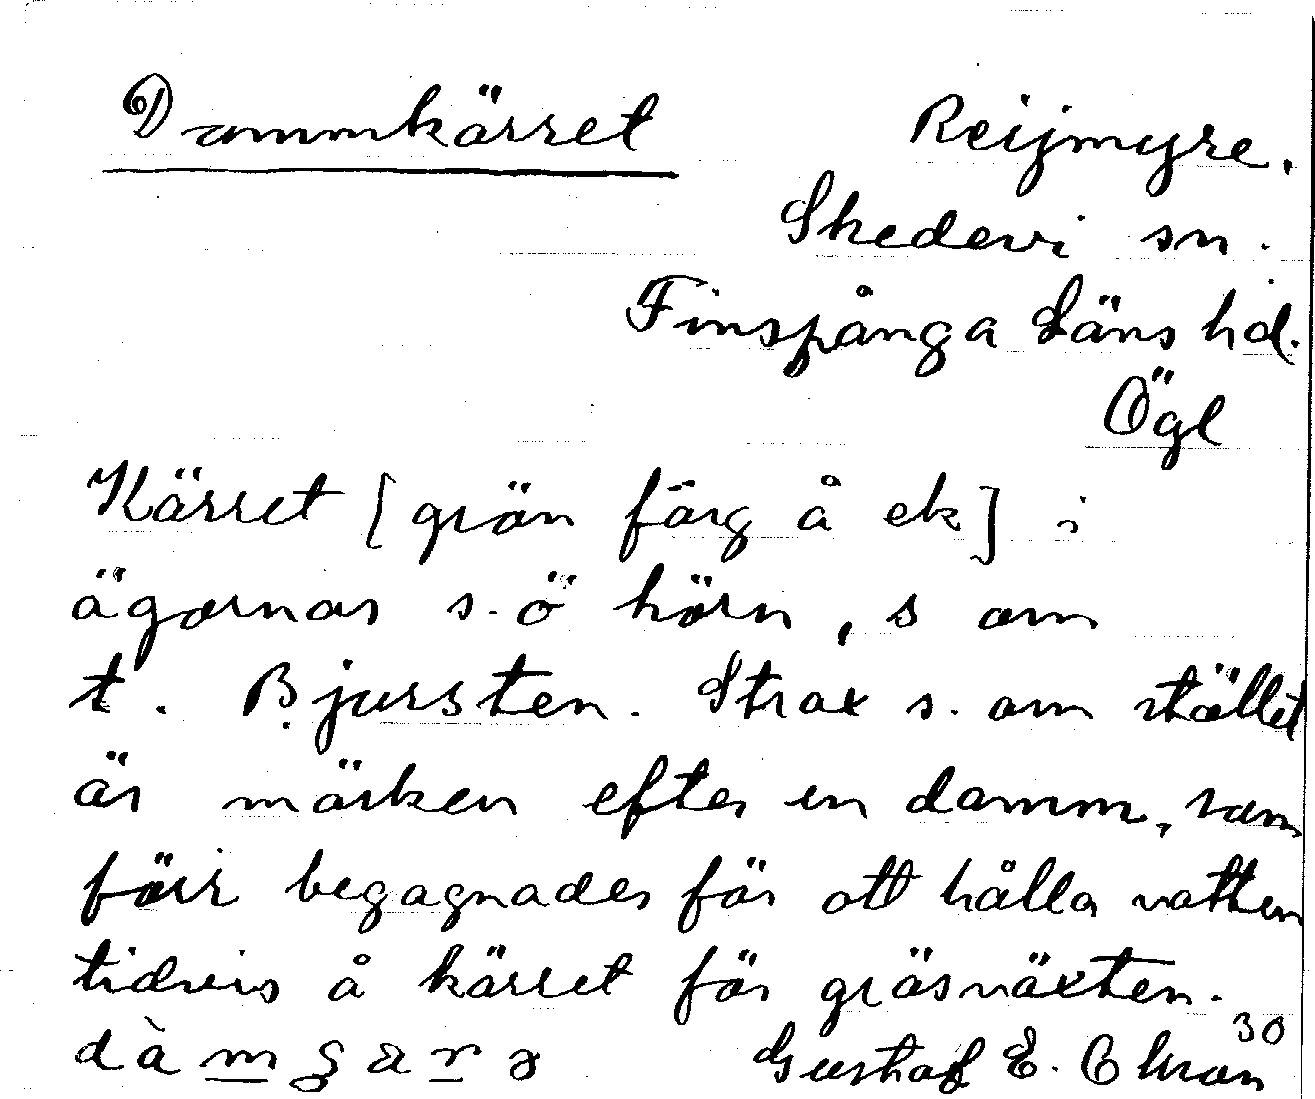 Dammkärret
Reijmyre.
Skedevi sn.
Finspånga Läns hd.
Ögl
Kärret [grön färg å ek] i
ägornas s.ö hörn, s om
t. Bjursten. Strax s. om stället
är märken efter en damm, som
förr begagnades för att hålla vatten
tidvis å kärret för gräsväxten.
30
Gustaf E.